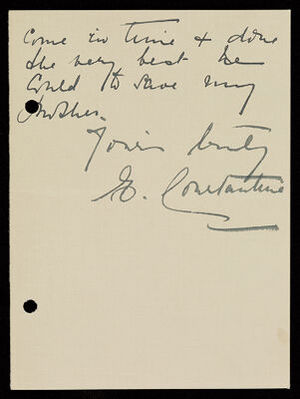 Come in time & done
the very best he
Could to save my
Mother.
Yours truly
E. Constantine